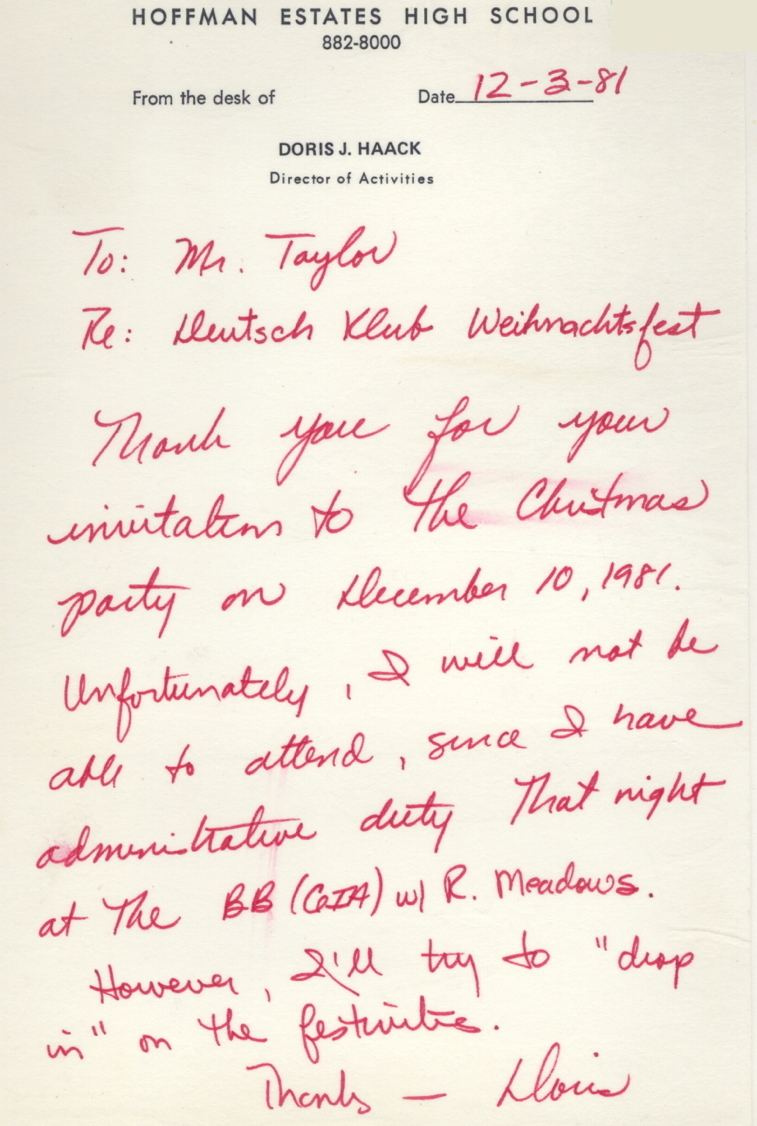 HOFFMAN ESTATES HIGH SCHOOL
882-8000
From the desk of Date 12-3-81
DORIS J. HAACK
Director of Activities
To: Mr. Taylor
Re: Deutsch Klub Weihnachtsfest
Thank you for your
invitation to the Christmas
party on December 10, 1981.
Unfortunately, I will not be
able to attend, since I have
administrative duty that night
at the BB (GIA) w/ R. Meadows.
However, I'll try to "drop
in" on the festivities.
Thanks — Doris